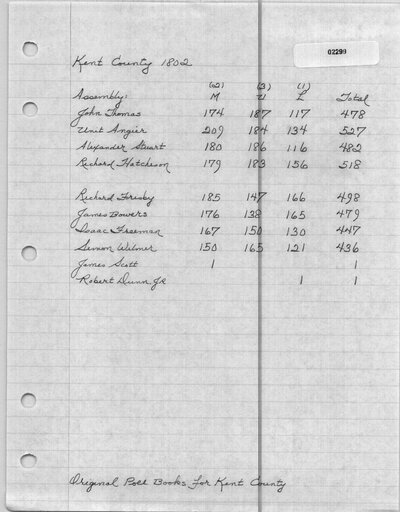 02299
Kent County 1802
(2) (3) (1)
Assembly: M U L Total
John Thomas 174 187 117 478
Unit Angier 209 184 134 527
Alexander Stuart 180 186 116 482
Richard Hatcheson 179 183 156 518
Richard Frisby 185 147 166 498
James Bowers 176 138 165 479
Isaac Freeman 167 150 130 447
Simon Wilmer 150 165 121 436
James Scott 1 1
Robert Dunn Jr 1 1
Original Poll Books For Kent County